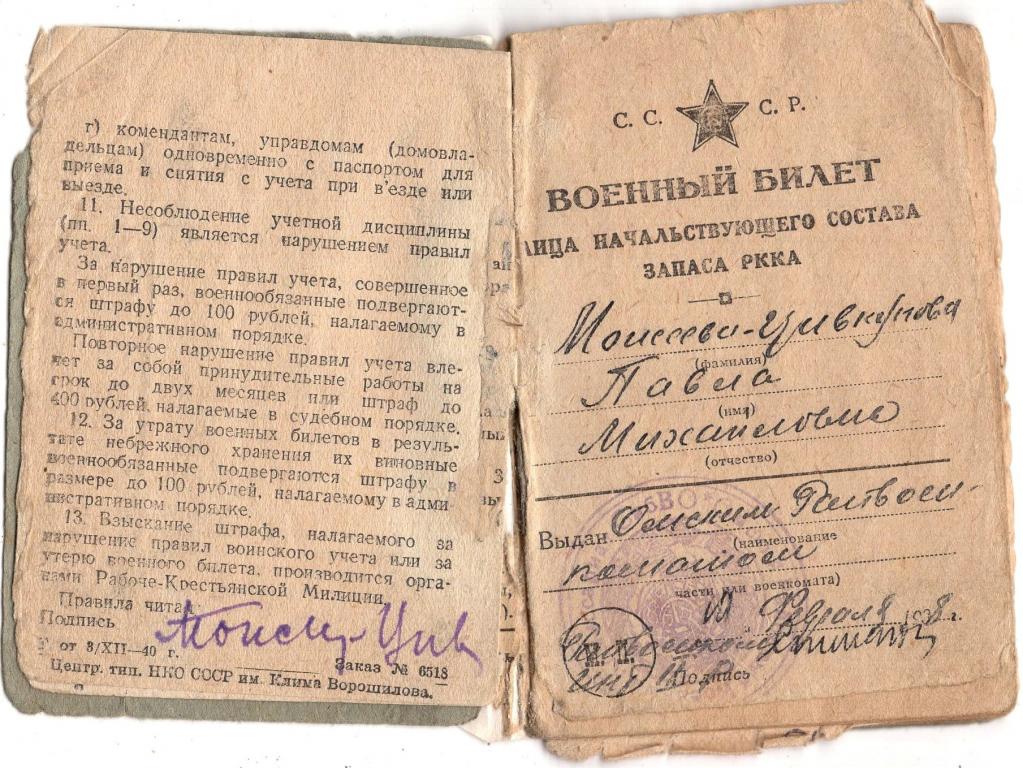 г) комендантам, управдомам (домовла-
дельцам) одновременно с паспортом для
приема и снятия с учета при в'езде или
выезде.
11. Несоблюдение учетной дисциплины
(пп. 1—9) является нарушением правил
учета.
За нарушение правил учета, совершенное
в первый раз, военнообязанные подвергают-
ся штрафу до 100 рублей, налагаемому в
административном порядке.
Повторное нарушение правил учета вле-
чет за собой принудительные работы на
срок до двух месяцев или штраф до
400 рублей, налагаемые в судебном порядке.
12. За утрату военных билетов в резуль-
тате небрежного хранения их виновные
военнообязанные подвергаются штрафу в
размере до 100 рублей, налагаемому в адми-
нистративном порядке.
13. Взыскание штрафа, налагаемого за
нарушение правил воинского учета или за
утерю военного билета, производится орга-
нами Рабоче-Крестьянской Милиции.
Правила читал
Подпись
от 3/XII—40 г.
Заказ № 6518
Центр. тип. НКО СССР им. Клима Ворошилова.
С. С. С. Р.
ВОЕННЫЙ БИЛЕТ
ЛИЦА НАЧАЛЬСТВУЮЩЕГО СОСТАВА
ЗАПАСА РККА
(фамилия)
Павла
(имя)
Михайловна
(отчество)
Выдан Омским
(наименование
части или военкомата)
Февраля 193 г.
М. П.
Подпись